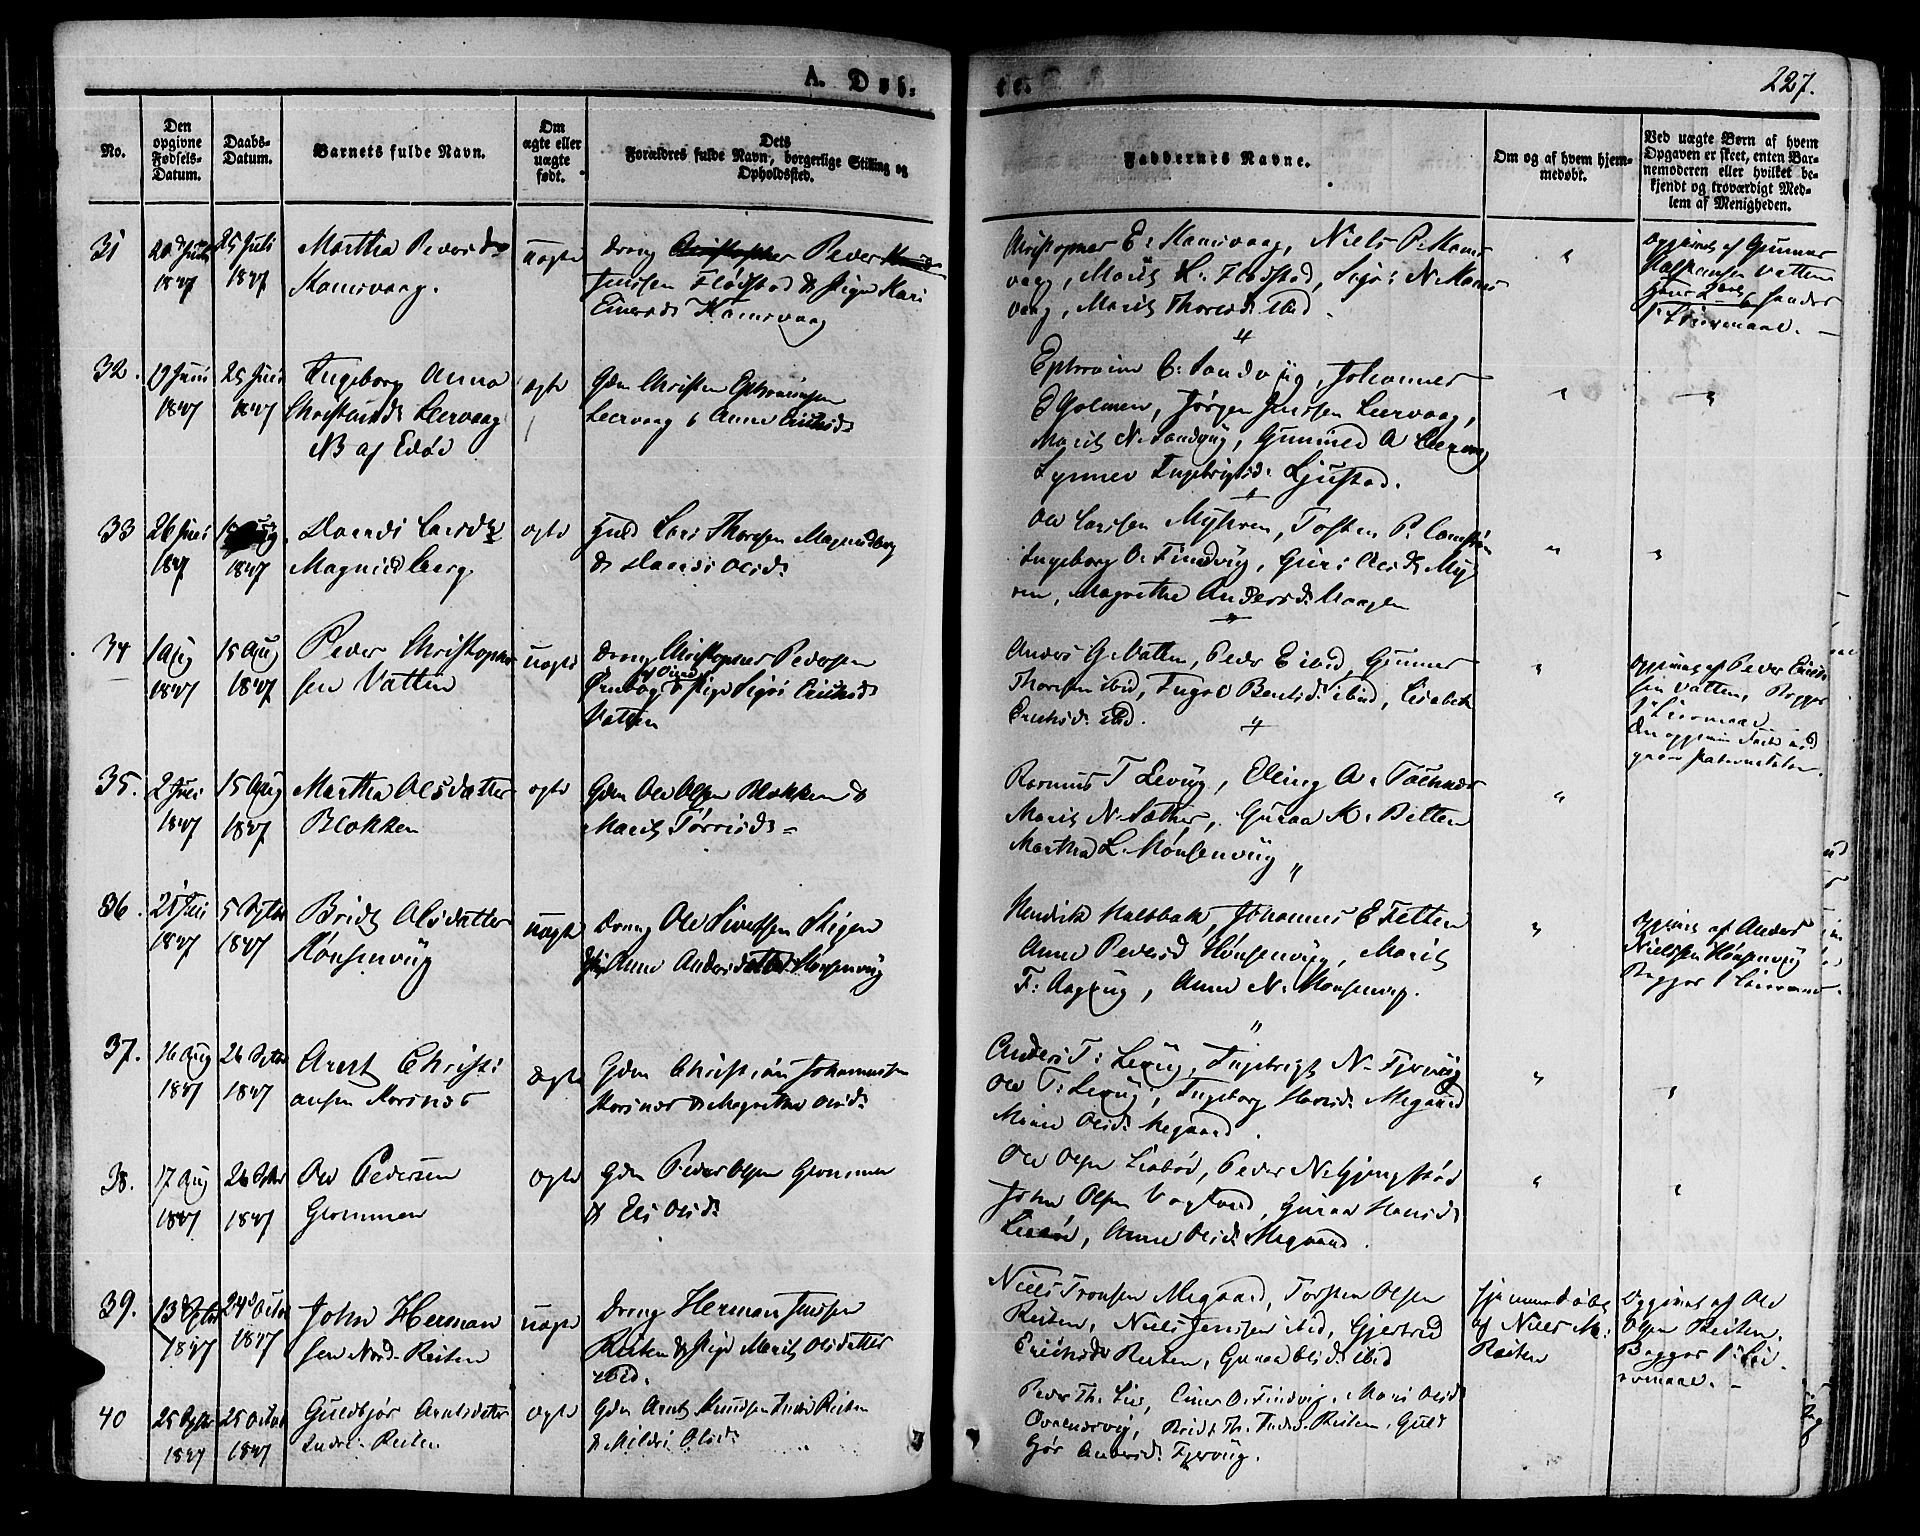 A. Døb-
te.
227.
No.
Den opgivne Fødsels-Datum.
Daabs-Datum.
Barnets fulde Navn.
Om ægte eller uægte født.
Dets
Forældres fulde Navn, borgerlige Stilling og
Opholdssted.
Faddernes Navne.
Om og af hvem hjem-
medøbt.
Ved uægte Børn af hvem
Opgaven er skeet, enten Bar-
nemoderen eller hvilket be-
kjendt og troværdigt Med-
lem af Menigheden.
31
25 Juli
1847
1847
Martha Pedersd
Kamsvaag.
uægte
Dreng Christopher Peder
Jenssen Flødstad & Pige Kari
Einersd Kamsvaag
Christopher E. Kamsvaag, Niels P. Kams
vaag, Marit K. Flødstad, N. Kams
vaag, Marit Thoresd. ibid.
32.
19 Juni
1847
25 Juli
1847
Ingeborg Anna
Leervaag
NB af Edø
ægte
Gdm Christen Ephraimsen
Leervaag & Anne Erichsd
Ephraim C. Sandvig, Johannes
E Golmen, Jørgen Jenssen Leervaag,
Marit N. Sandvig, Gunnild A Leervaag
Synnev Ingebrigtsd. Ljustad.
33
26 Juni
1847
1847
Larsd
Magnildberg
ægte
Lars Thoresen Magnildberg
& Olsd.
Ole Larssen Myhren, Tosten P.
Ingeborg O. Findvig, Guri Olsd. Myh
ren, Magrethe Andersd.
34
1 Aug
1847
15 Aug
1847
Peder Christopher
sen Vatten
uægte
Dreng Christopher Pedersen
& Pige Erichsd
Vatten
Anders G. Vatten, Peder E. ibid, Gunner
Thoresen ibid, Bentsd. ibid, Lisabeth
Erichsd. ibid.
Opgivet af Peder Erich
sen Vatten, Begges
1. Leiermaal
35.
2 Juli
1847
15 Aug
1847
Martha Olsdatter
Blokken
ægte
Gdm Ole Olsen Blokken &
Marit Torrisd.
Rasmus T Levig, Elling A.
Marit N. Sæther, Guraa K. Betten
Martha L. Hønsenvig
36.
21 Juli
1847
5 Septbr
1847
Bridt Olsdatter
Hønsenvig
uægte
Dreng Ole Sivertsen
Pige Anne Andersdatter Hønsenvig
Hendrik Halsbak, Johannes E Fetten
Anne Pedersd Hønsenvig, Marit
F. Aagvig, Anne N. Hønsenvig.
Opgivet af Anders
Nielssen Hønsenvig
Begges 1 Leiermaal.
37.
16 Aug
1847
26 Septbr
1847
Arnt Christi
ansen Korsnæs
ægte
Gdm Christian Johannessen
Korsnæs & Magrethe Olsd.
Anders T. Levig, Ingebrigt N. Fjervig
Ole T. Levig, Ingeborg Hansd. Megaard
Marit Olsd. Megaard.
38.
17 Aug
1847
26 Septbr
1847
Ole Pedersen
Glommen
ægte
Gdm Peder Olsen Glommen
& Eli Olsd.
Ole Olsen Leabø, Peder N.
John Olsen Vagland, Guraa Hansd.
Leabø, Anne Olsd. Megaard.
39.
13 Septbr
1847
24 Octbr
1847
John Herman
sen Nord-Reiten
uægte
Dreng Herman Jenssen
Reiten & Pige Marit Olsdatter
ibid.
Niels Tronsen Megaard, Torsten Olsen
Reiten, Niels Jenssen ibid, Gjertrud
Erichsd. Reiten, Guraa Olsd. ibid
Hjemmedøbt
af Niels M.
Reiten
Opgivet af Ole
Olsen Reiten.
Begges 1. Lei
ermaal.
40
25 Septbr
1847
25 Octbr
1847
Guldbjør Arntsdatter
Indre Reiten
ægte
Gdm Arnt Knudsen Indre Reiten
& Mildri Olsd.
Peder Th. Lie, Einer O. Findvig, Mari Olsd
Bridt Th. Indre-Reiten, Guld
bjør Andersd. Fjervig.